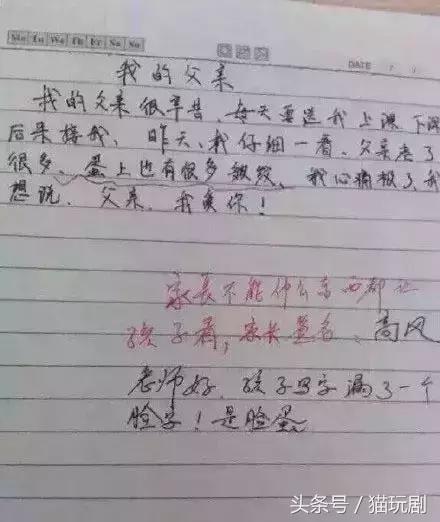 Mo Tu We Th Fr Sa Su
DATE / /
我的父亲
我的父亲很辛苦、每天要送我上课、下课
后来接我、昨天、我仔细一看、父亲老了
很多、蛋上也有很多皱纹、我心痛极了、我
想说、父亲、我爱你!
家长不能什么东西都让
孩子看,家长签名、高风
老师好、孩子写字漏了一个
脸字!是脸蛋
头条号/猫玩剧